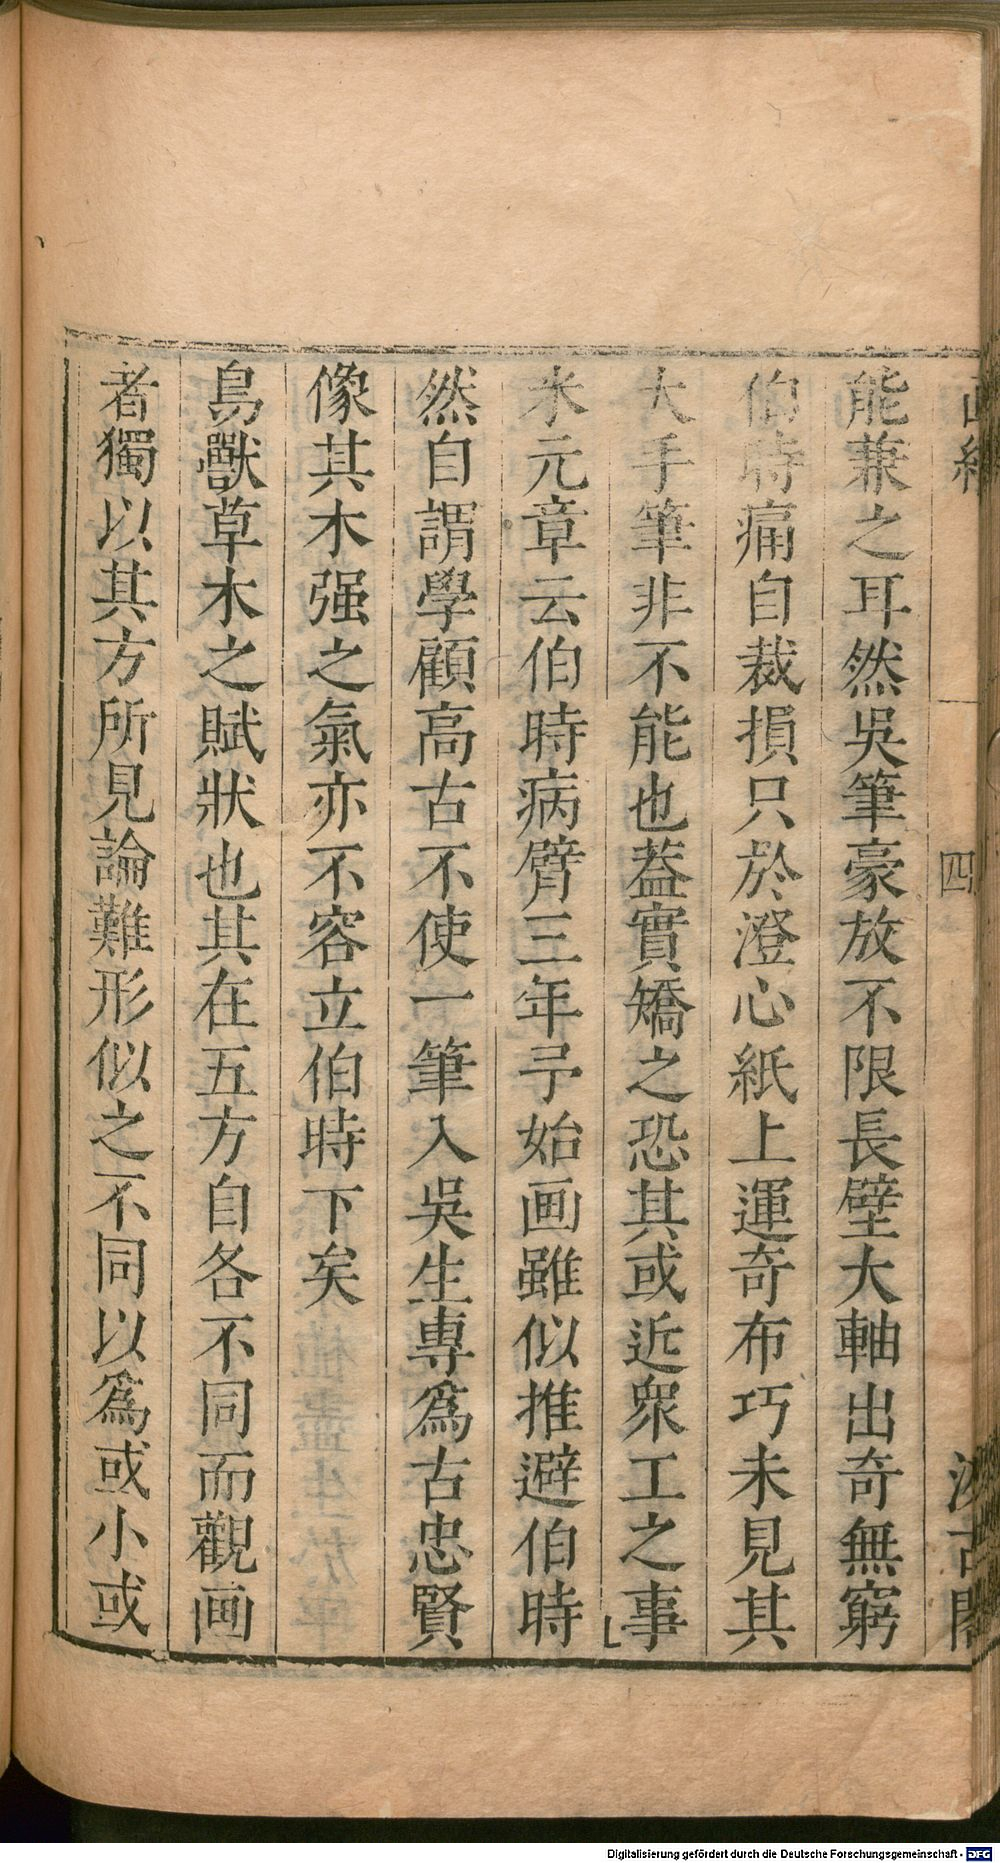 能兼之耳然吳筆豪放不限長壁大軸出奇無窮
伯時痛自裁損只於澄心紙上運奇布巧未見其
大手筆非不能也葢實矯之恐其或近衆工之事
米元章云伯時病臂三年予始画雖似推避伯時
然自謂學顧高古不使一筆入吳生專爲古忠賢
像其木强之氣亦不容立伯時下矣
鳥獸草木之賦狀也其在五方自各不同而觀画
者獨以其方所見論難形似之不同以爲或小或
四
Digitalisierung gefördert durch die Deutsche Forschungsgemeinschaft - DFG